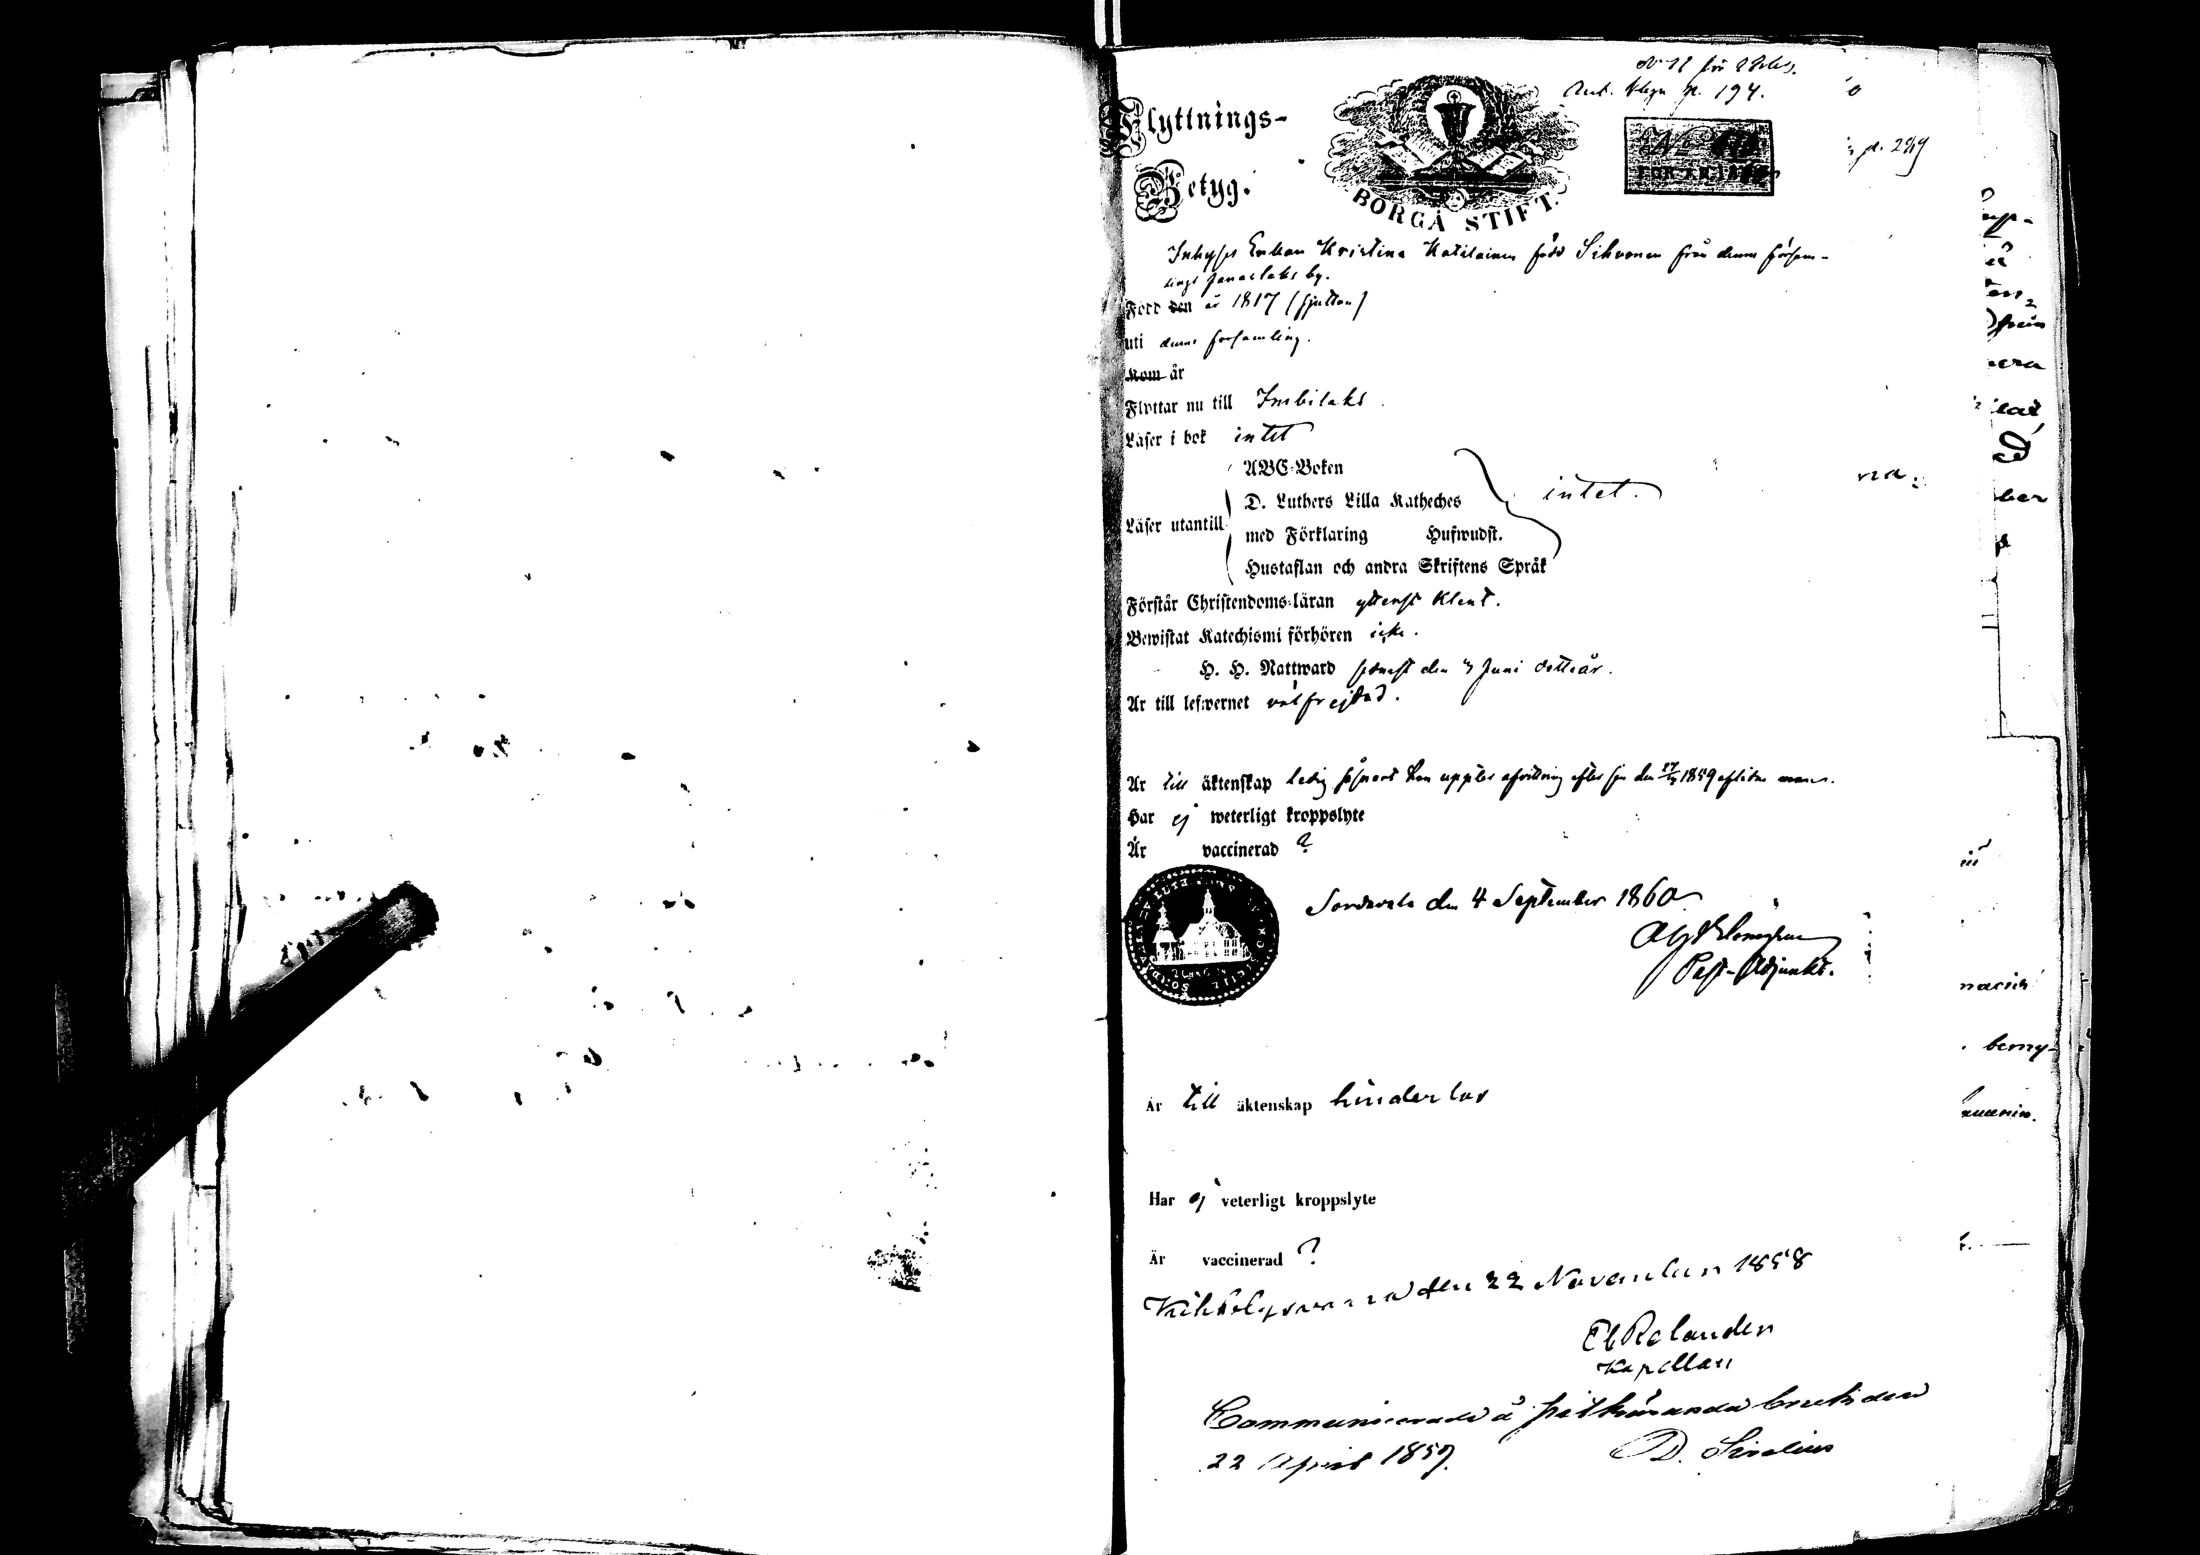 N 11 för 1860.
p. 194.
Flyttnings-
Betyg.
BORGÅ STIFT.
No
FÖR ÅR 18
p. 289
Inhyses Enkan Kristina Katilainen född Sihvonen från denna försam-
lings by.
Född den år 1817 (sjutton)
uti denna församling.
Kom år
Flyttar nu till Imbilaks.
Läser i bok intet
ABC-Boken
D. Luthers Lilla Katheches
intet.
Läser utantill
med Förklaring Hufwudst.
Hustaflan och andra Skriftens Språk
Förstår Christendoms-läran ytterst klent.
Bewistat Katechismi förhören icke.
H. H. Nattward senast den 3 Juni detta år.
Är till lefwernet välfrejdad.
Är till äktenskap ledig hon upptes afvittring efter sin den 1859 aflidne man.
Har ej weterligt kroppslyte
Är vaccinerad ?
Sordavala den 4 September 1860
Past-Adjunkt.
Är till äktenskap hinderlös
Har ej veterligt kroppslyte
Är vaccinerad ?
den 22 November 1858
Relander
Kapellan
Communicerade å Pitkäranda bruk den
22 April 1859.
D. Sirelius